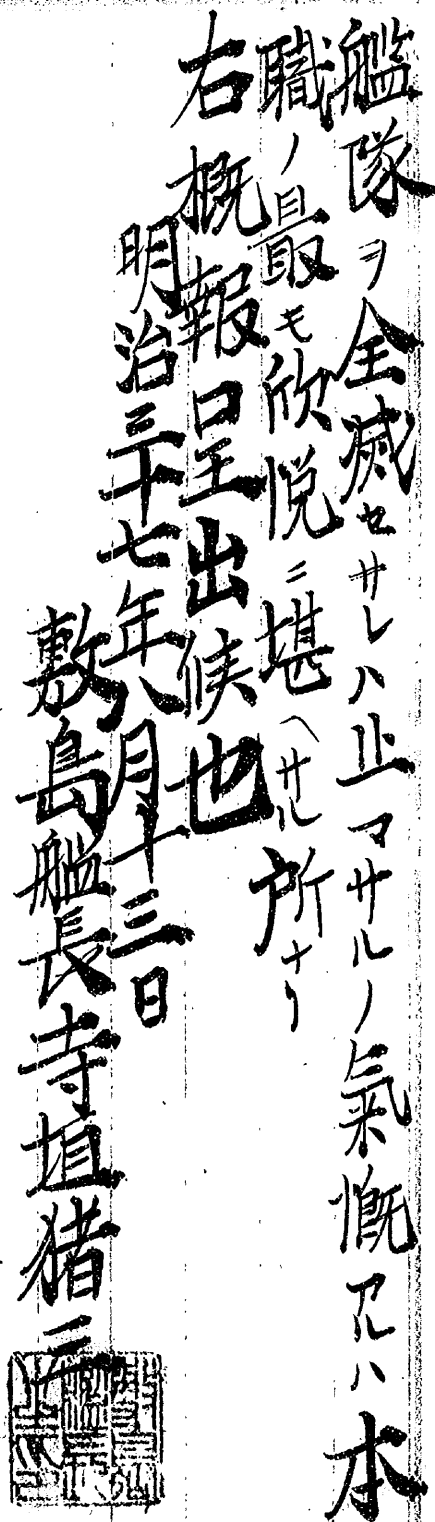 艦隊ヲ全滅セサレハ止マサルノ氣慨アルハ本
職ノ最モ欣悦ニ堪ヘサル所ナリ
右概報呈出候也
明治三十七年八月十三日
敷島艦長寺垣猪三